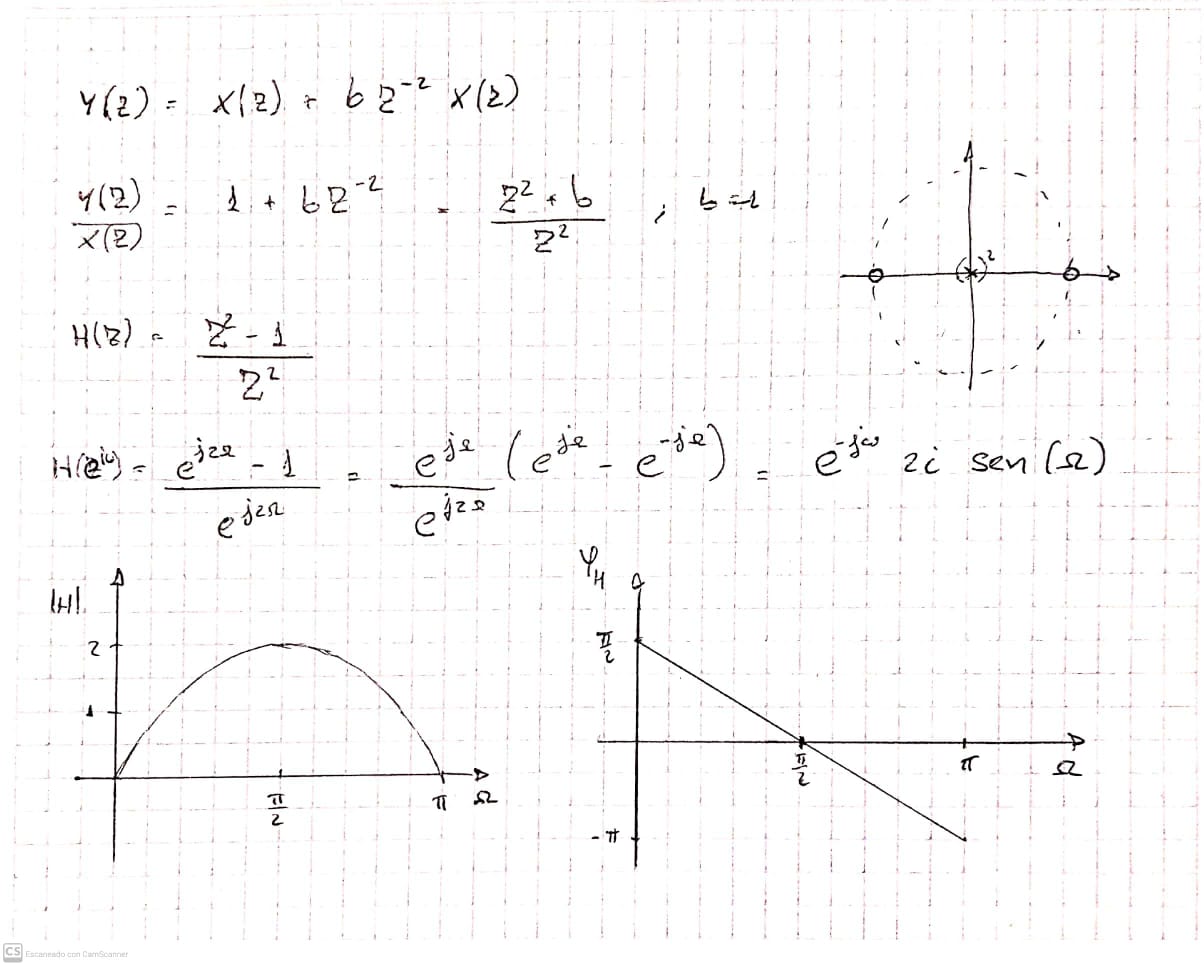 Y(z) = X(z) + b z⁻² X(z)
Y(z)/X(z) = 1 + b z⁻² = (z² + b)/z² , b=1
( )²
H(z) = (z² - 1)/z²
H(e^{jω}) = (e^{j2Ω} - 1)/e^{j2Ω} = e^{jΩ}/e^{j2Ω} (e^{jΩ} - e^{-jΩ}) = e^{-jω} 2i sen(Ω)
|H|
2
1
π/2
π Ω
φ_H
π/2
π/2
π Ω
-π
CS Escaneado con CamScanner